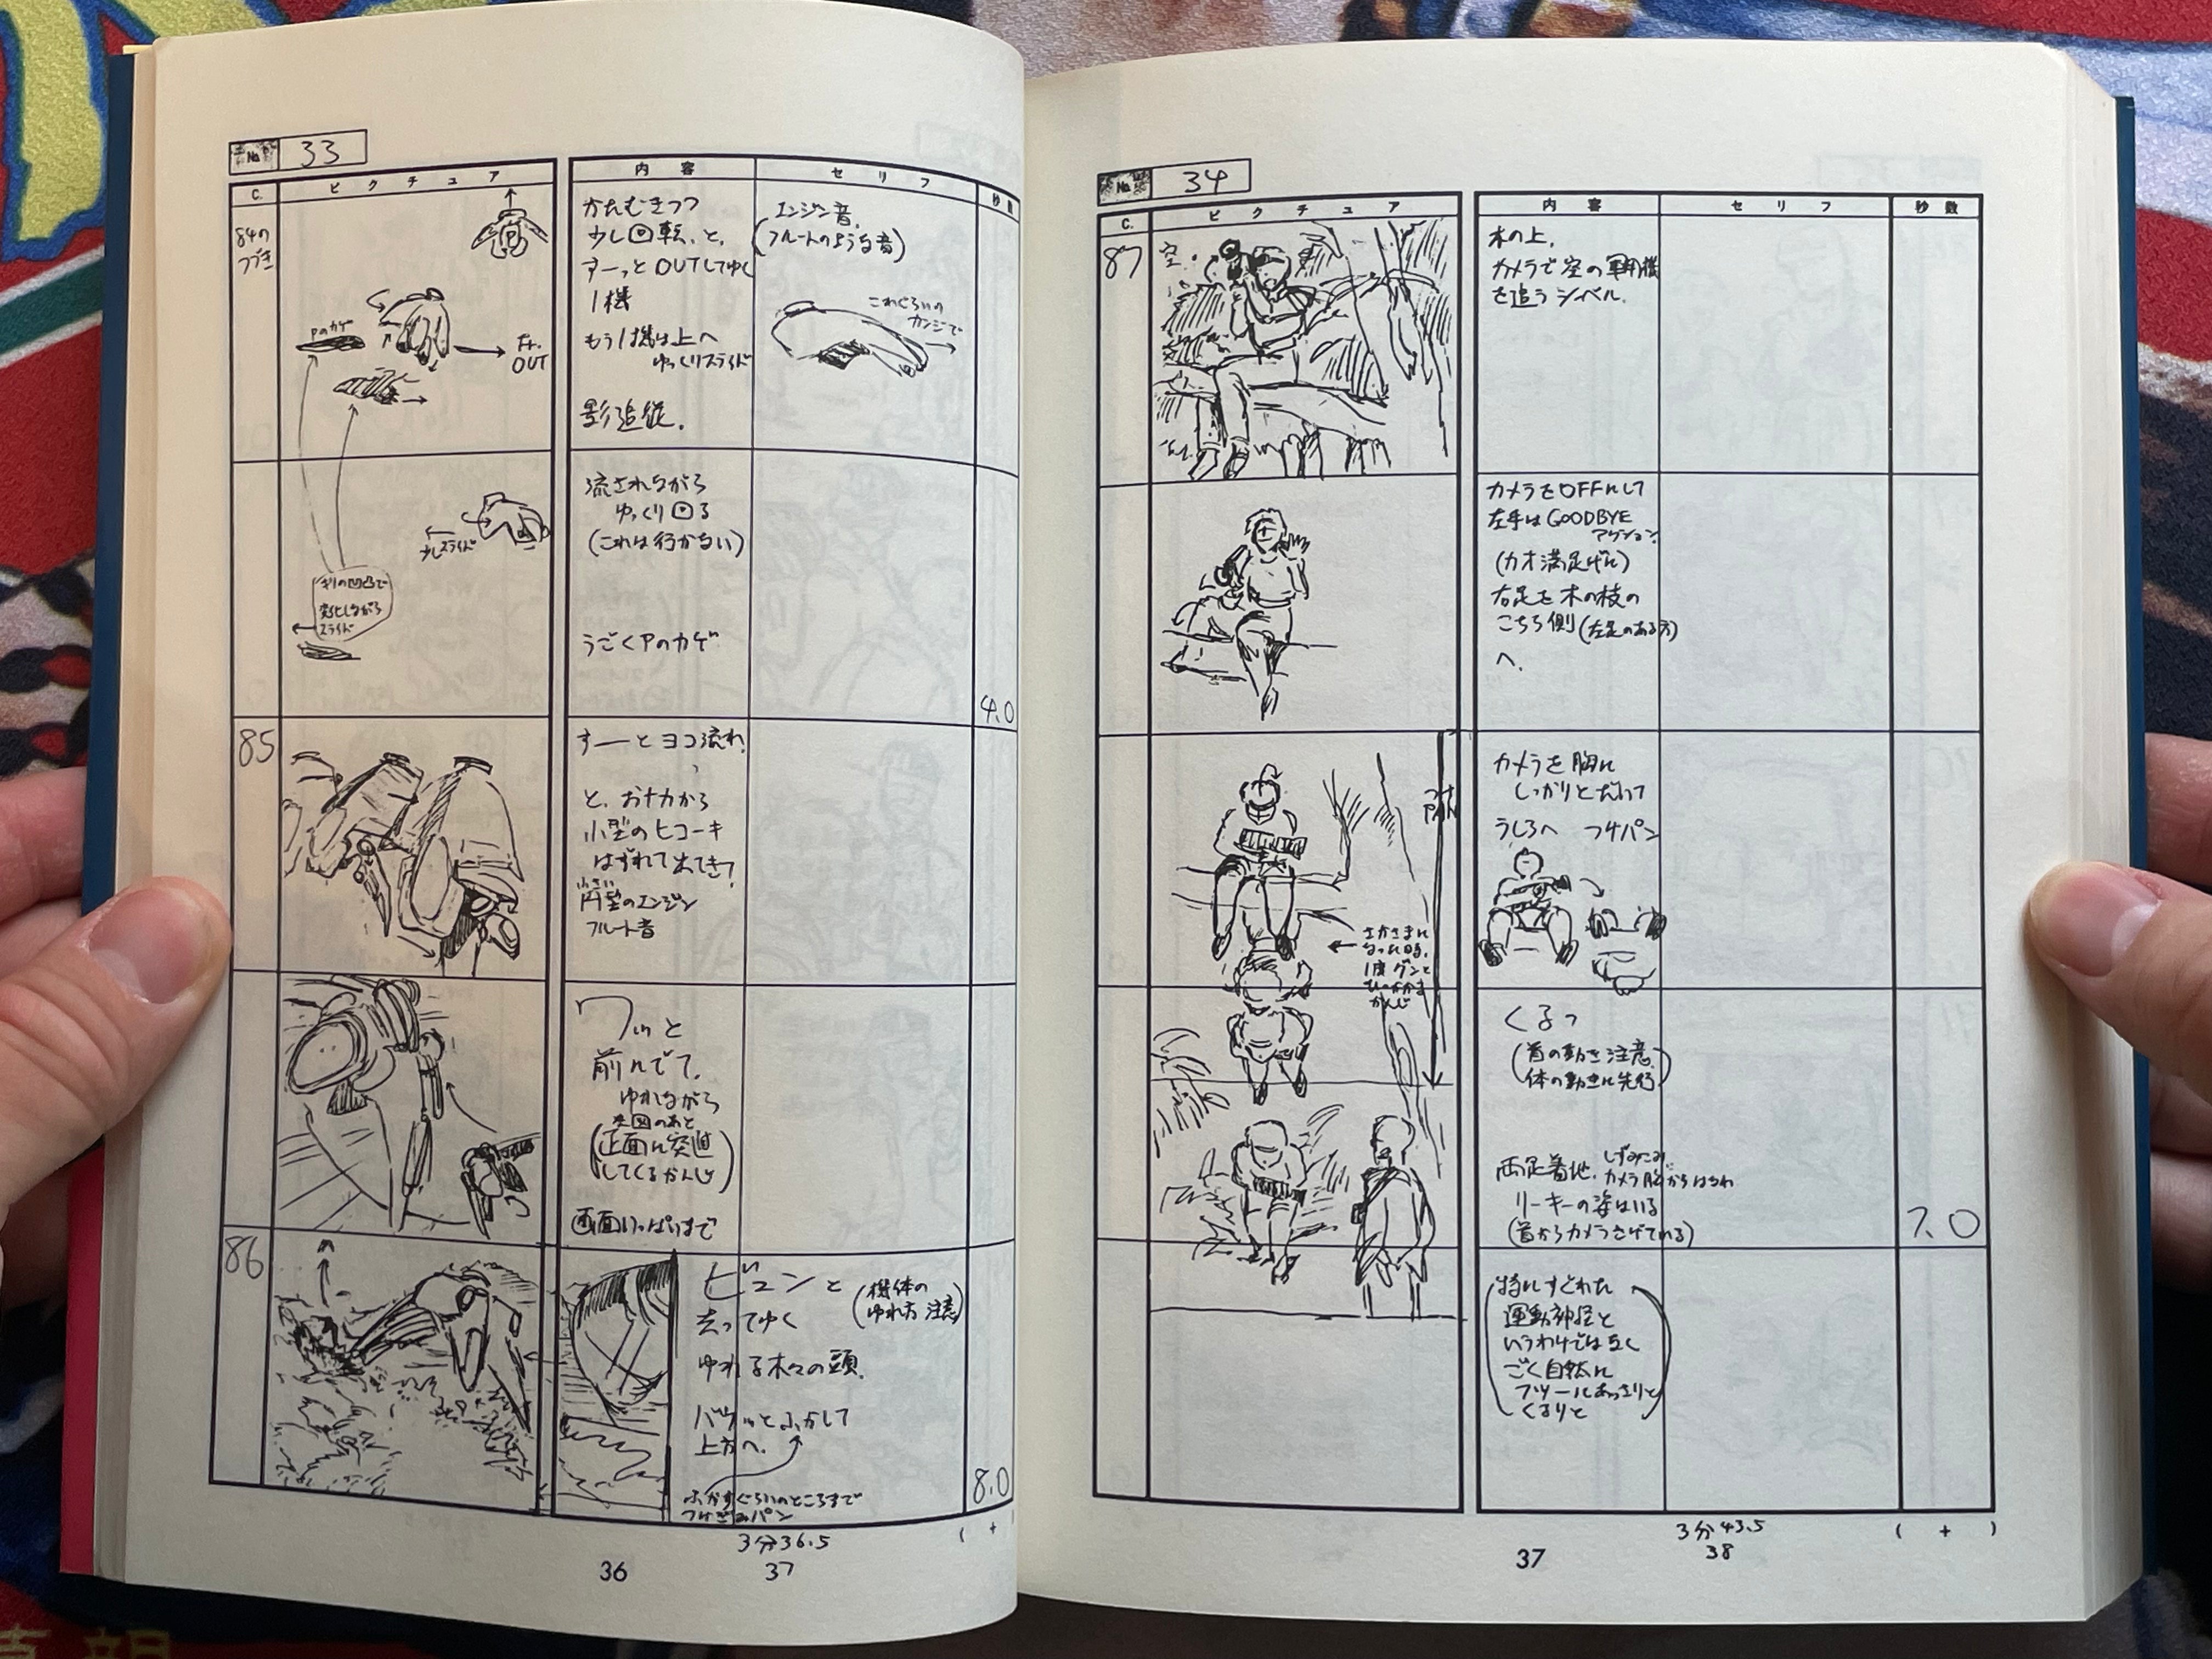 No. 33
C.
ピクチュア
内容
セリフ
秒数
84の
つづき
Pのカゲ
Fr.
OUT
かたむきつつ
少し回転、と、
すーっとOUTしてゆく
1機
もう1機は上へ
ゆっくりスライド
影追従。
エンジン音
(フルートのような音)
これぐらいの
カンジで
少しスライド
変化しながら
スライド
流されながら
ゆっくり回る
(これは行かない)
うごくPのカゲ
4.0
85
すーーとヨコ流れ、
と、おナカから
小型のヒコーキ
はずれて出てきて
小さい
円型のエンジン
フルート音
ワッと
前にでて、
ゆれながら
左図のあと
(正面に突進
してくるかんじ)
画面いっぱいまで
86
ビュンと
去ってゆく
(機体の
ゆれ方 注意)
ゆれる木々の頭。
バウッとふかして
上方へ。
ふかすぐらいのところまで
つけごみパン
8.0
3分36.5
37
( + )
36
No. 34
C.
ピクチュア
内容
セリフ
秒数
87
空
木の上。
カメラで空の軍用機
を追うシベル。
カメラをOFFにして
左手はGOODBYE
アクション。
(カオ満足げに)
右足を木の枝の
こちら側(左足のある方)
へ。
カメラを胸に
しっかりとだいて
うしろへ つけパン
つけ
PAN
さかさまに
なった時、
1度グンと
ひっかかる
かんじ
くるっ
(首の動き注意
体の動きに先行)
しずみこみ
両足着地。カメラ胸からはなれ
リーキーの姿はいる
(首からカメラさげている)
7.0
(特にすぐれた
運動神経と
いうわけではなく
ごく自然に
フツーにあっさりと
くるりと)
3分43.5
38
( + )
37